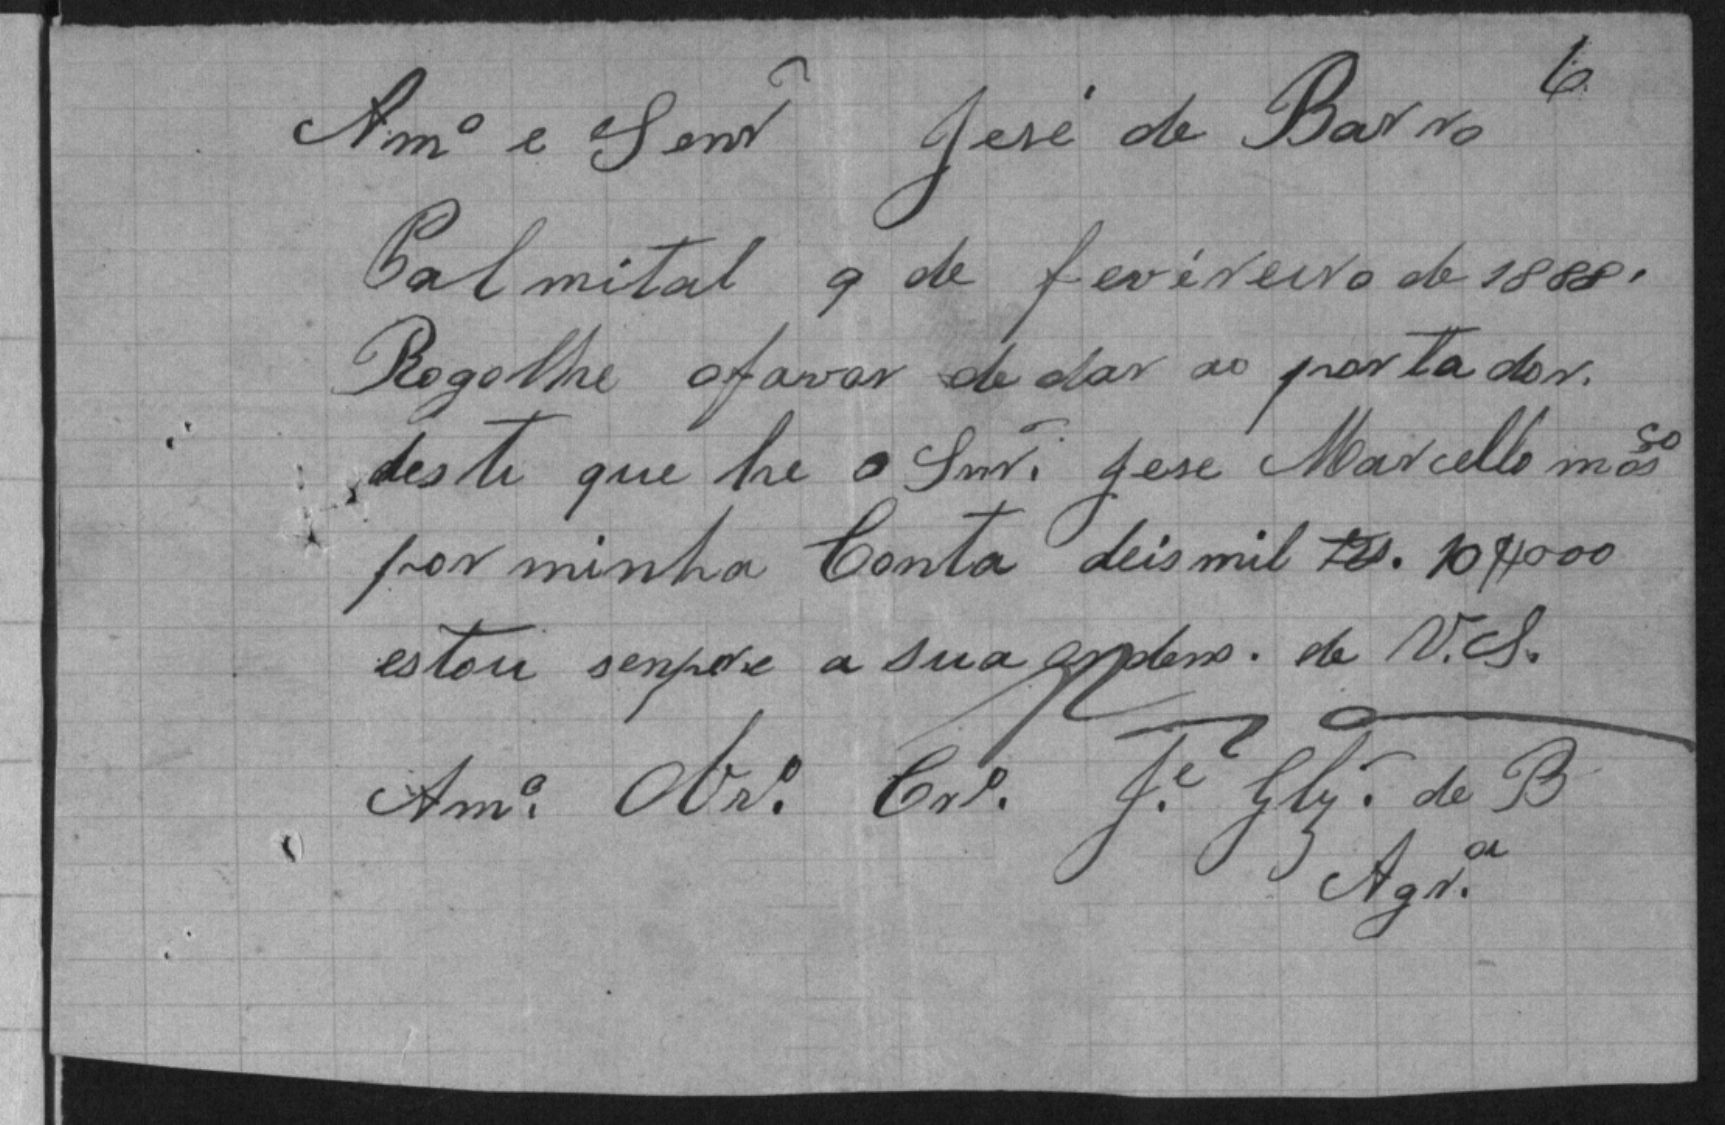 6
Amº e Senr José de Barro
Palmital 9 de fevéreiro de 1888.
Rogolhe ofavor de dar ao portador.
deste que he o Snr. Jose Marcello
por minha Conta deis mil rs. 10$000
estou senpre a sua ordens. de V.S.
Amº. Obrº. Crº. J.e Gly. de B
Agr.a